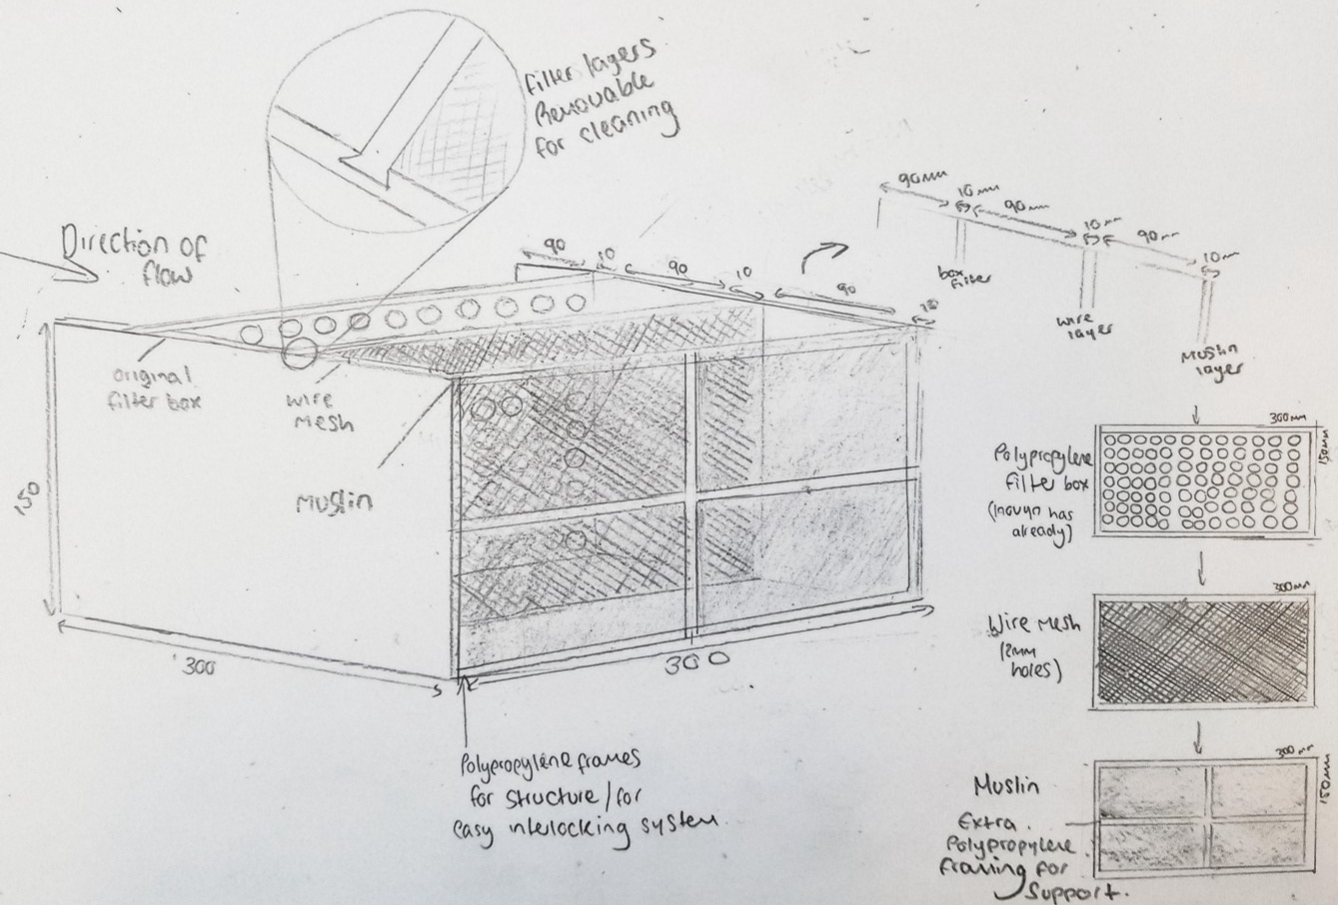 Filter layers
Removable
for cleaning
Direction of
flow
90
10
90
10
90
10
90mm
10mm
90mm
10mm
90mm
10mm
box
filter
wire
layer
Muslin
layer
original
filter box
wire
mesh
Muslin
150
300
300
Polypropylene frames
for structure / for
easy interlocking system.
300mm
150mm
Polypropylene
filter box
(Inovyn has
already)
300mm
Wire Mesh
(2mm
holes)
300mm
150mm
Muslin
Extra
Polypropylene
framing for
support.